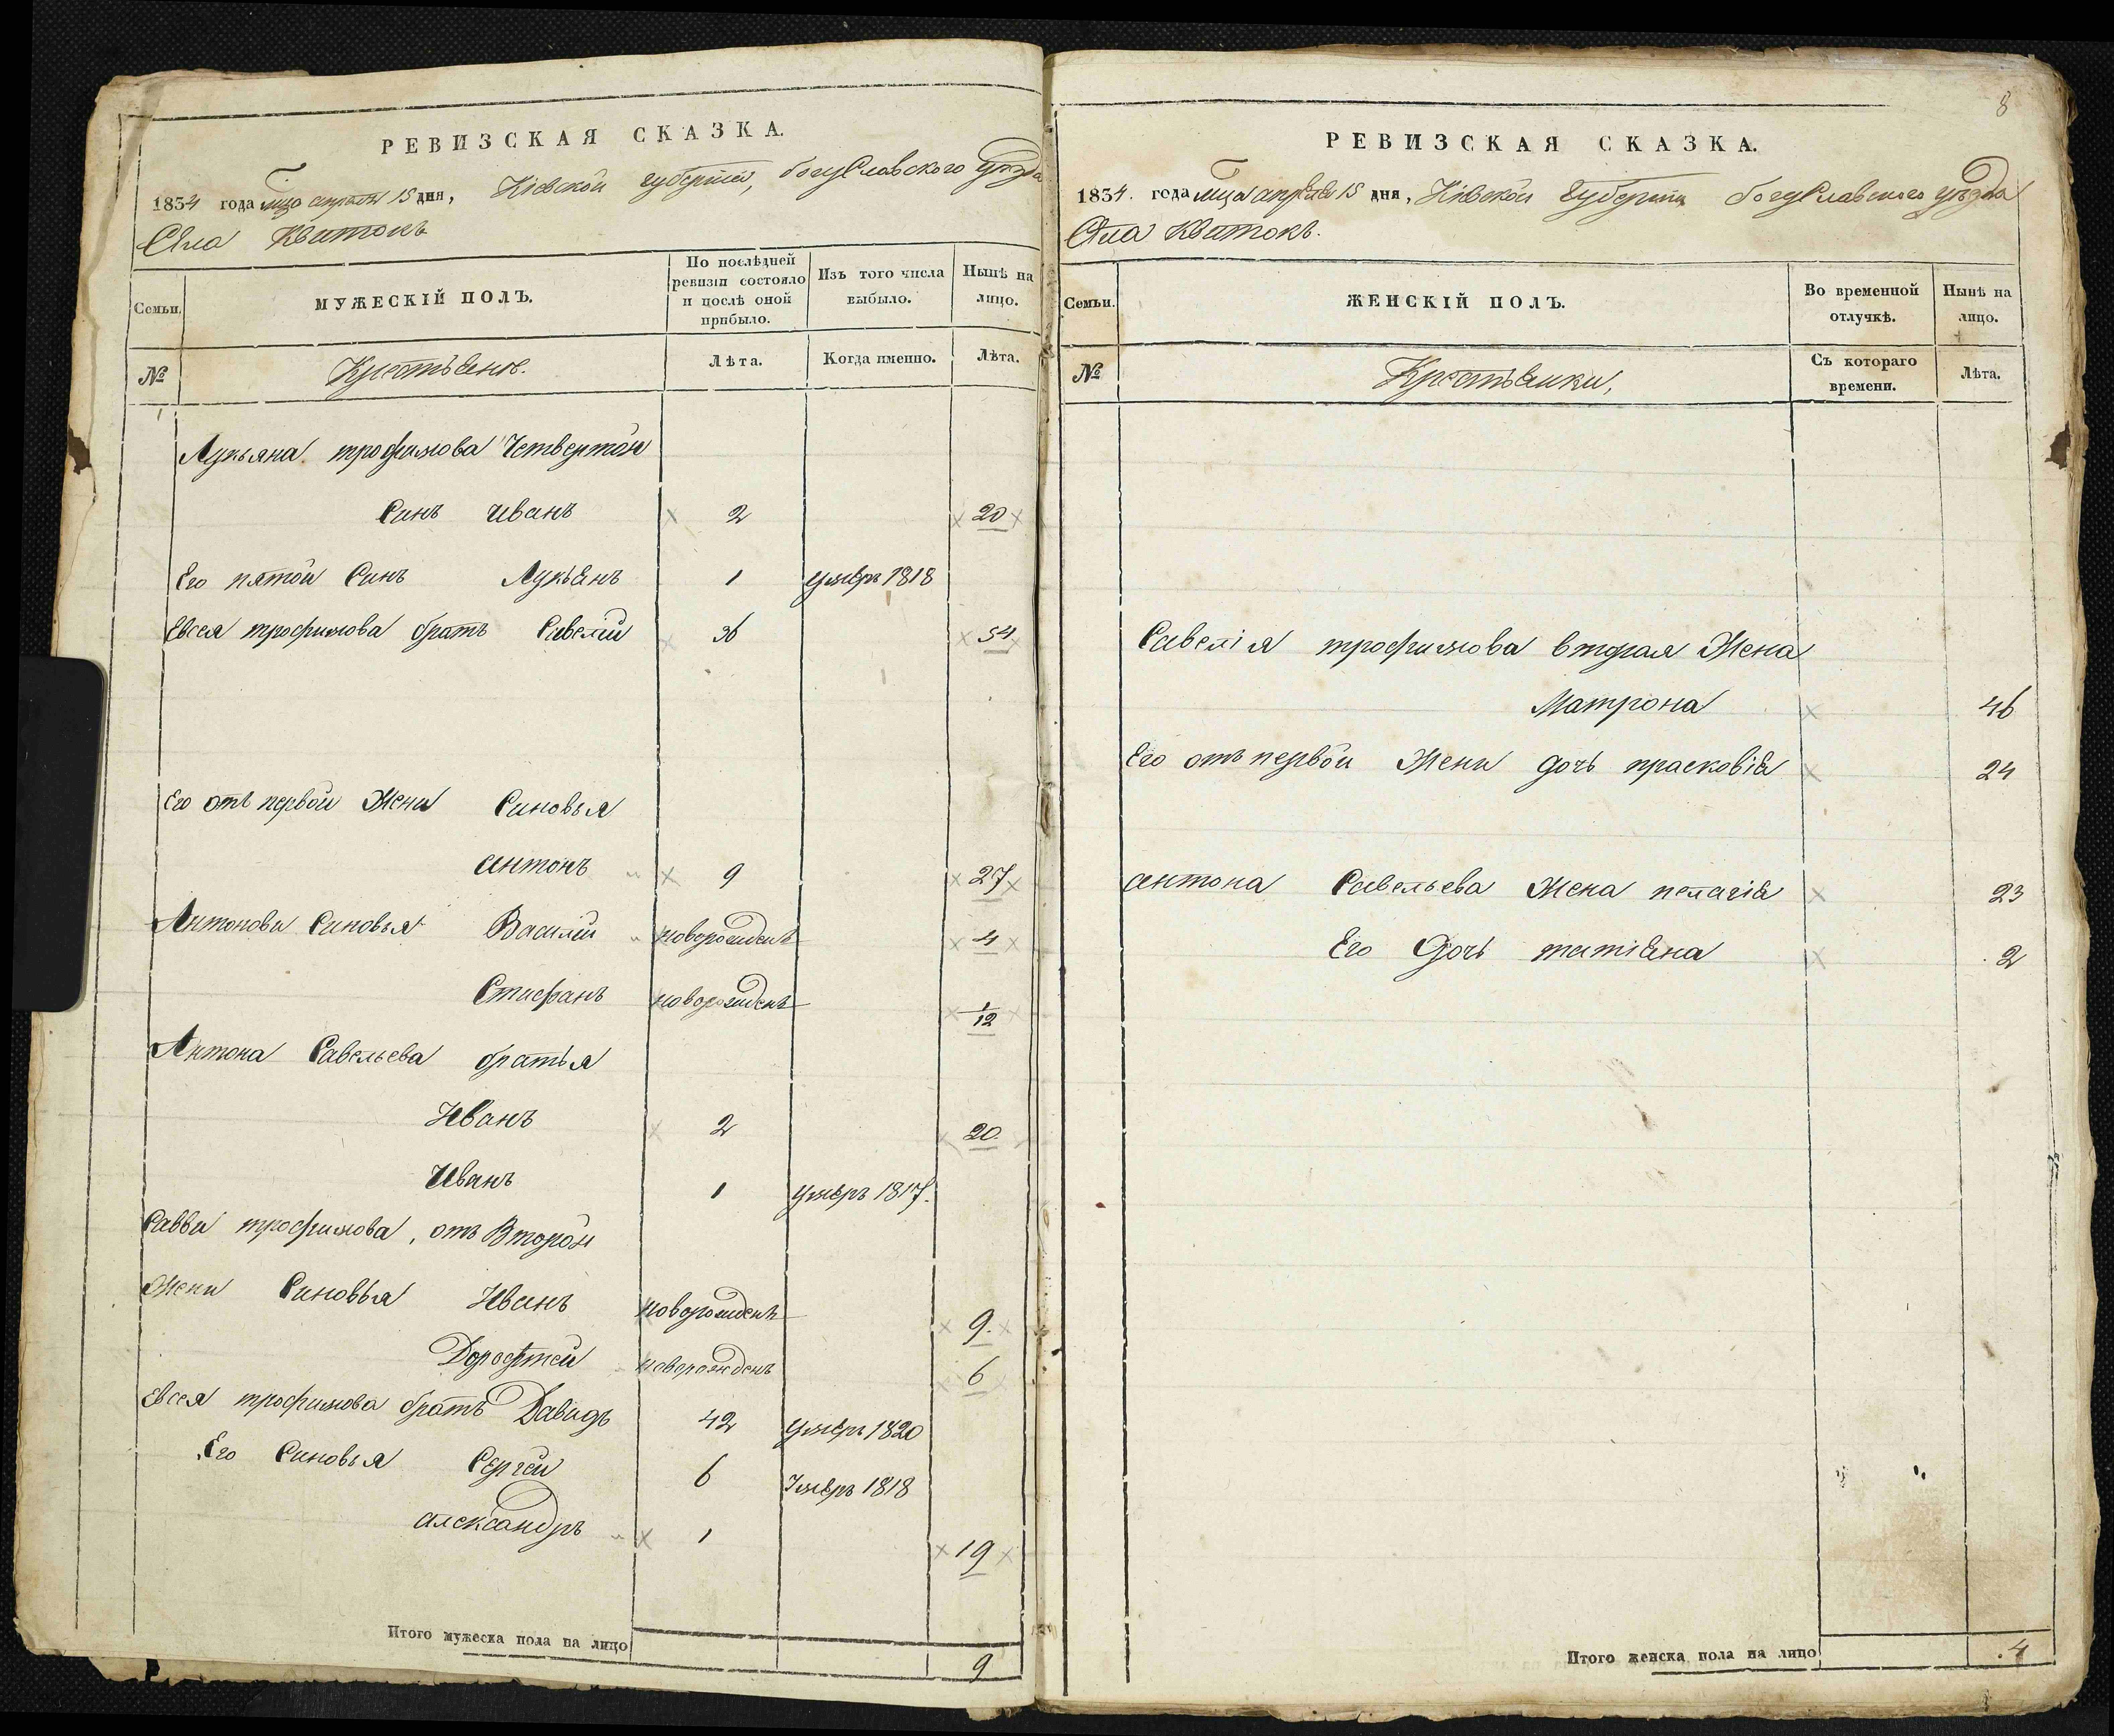 РЕВИЗСКАЯ СКАЗКА.
1834 года мца апреля 15 дня, Кіевской губерніи, богуславского уезда
Села Квитокъ
Семьи.
МУЖЕСКІЙ ПОЛЪ.
По послѣдней ревизіи состояло и послѣ оной прибыло.
Изъ того числа выбыло.
Нынѣ на лицо.
№
Крестьяне.
Лѣта.
Когда именно.
Лѣта.
Лукьяна трофимова Четвертой
Синъ иванъ 2 20
Его пятой Синъ Лукьянъ 1 умеръ 1818
Евсея трофимова братъ Савелій 36 54
Его отъ первой Жени Синовья
антонъ 9 27
Антонови Синовья Василій новорожденъ 4
Стефанъ новорожденъ 1/12
Антона Савельева братья
Иванъ 2 20
Иванъ 1 умеръ 1817.
Савви трофимова, отъ Второй
Жени Синовья Иванъ новорожденъ 9.
Дорофтей новорожденъ 6
Евсея трофимова братъ Давидъ 42 умеръ 1820
Его Синовья Сергей 6 умеръ 1818
александръ 1 19
Итого мужеска пола на лицо 9
8
РЕВИЗСКАЯ СКАЗКА.
1834. года мца апреля 15 дня, Кіевской Губерніи богуславского уезда
Села Квитокъ.
Семьи.
ЖЕНСКІЙ ПОЛЪ.
Во временной отлучкѣ.
Нынѣ на лицо.
№
Крестьянки,
Съ котораго времени.
Лѣта.
Савелія трофимова вторая Жена
Матрона 46
Его отъ первой Жени дочь прасковія 24
антона Савельева Жена пелагія 23
Его Дочь татіяна 2
Итого женска пола на лицо 4